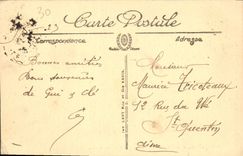 30
Carte Postale
Correspondance
Adresse
Bonnes amitiés
Bons souvenirs
de Gui
Monsieur
Maurice Tricoteaux
12 Rue du
St Quentin
Aisne